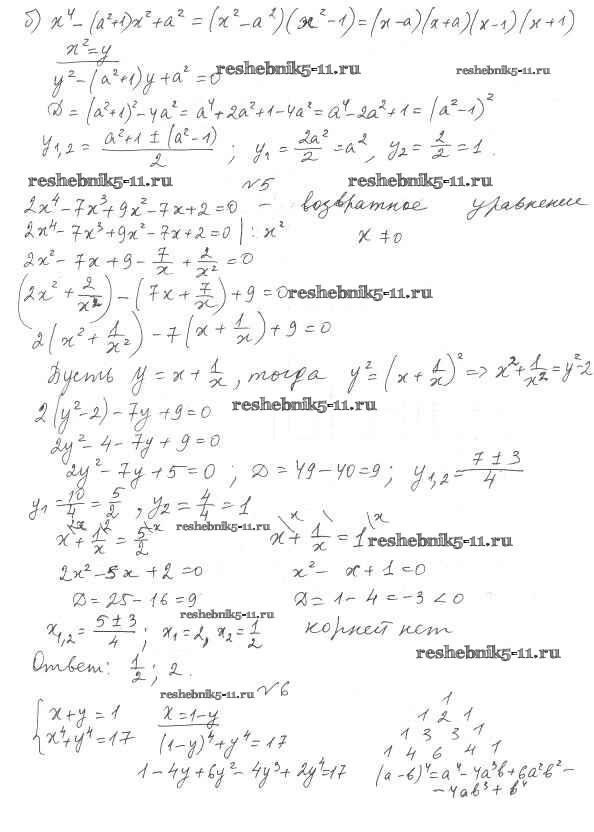 б) x⁴ - (a²+1)x² + a² = (x² - a²)(x² - 1) = (x-a)(x+a)(x-1)(x+1)
x² = y
y² - (a²+1)y + a² = 0 reshebnik5-11.ru reshebnik5-11.ru
D = (a²+1)² - 4a² = a⁴ + 2a² + 1 - 4a² = a⁴ - 2a² + 1 = (a² - 1)²
y₁,₂ = (a²+1 ± (a²-1))/2 ; y₁ = 2a²/2 = a², y₂ = 2/2 = 1.
reshebnik5-11.ru №5 reshebnik5-11.ru
2x⁴ - 7x³ + 9x² - 7x + 2 = 0 - возвратное уравнение
2x⁴ - 7x³ + 9x² - 7x + 2 = 0 | : x² x ≠ 0
2x² - 7x + 9 - 7/x + 2/x² = 0
(2x² + 2/x²) - (7x + 7/x) + 9 = 0 reshebnik5-11.ru
2(x² + 1/x²) - 7(x + 1/x) + 9 = 0
Пусть y = x + 1/x, тогда y² = (x + 1/x)² => x² + 1/x² = y² - 2
2(y² - 2) - 7y + 9 = 0 reshebnik5-11.ru
2y² - 4 - 7y + 9 = 0
2y² - 7y + 5 = 0 ; D = 49 - 40 = 9 ; y₁,₂ = (7 ± 3)/4
y₁ = 10/4 = 5/2, y₂ = 4/4 = 1
x\2x + 1/x\2 = 5/2\x reshebnik5-11.ru x\x + 1/x = 1\x reshebnik5-11.ru
2x² - 5x + 2 = 0 x² - x + 1 = 0
D = 25 - 16 = 9 D = 1 - 4 = -3 < 0
reshebnik5-11.ru
x₁,₂ = (5 ± 3)/4 ; x₁ = 2, x₂ = 1/2 корней нет
reshebnik5-11.ru
Ответ: 1/2 ; 2.
reshebnik5-11.ru №6
{ x + y = 1 x = 1 - y 1
x⁴ + y⁴ = 17 (1 - y)⁴ + y⁴ = 17 1 2 1
1 3 3 1
1 4 6 4 1
1 - 4y + 6y² - 4y³ + 2y⁴ = 17 (a - b)⁴ = a⁴ - 4a³b + 6a²b² -
- 4ab³ + b⁴